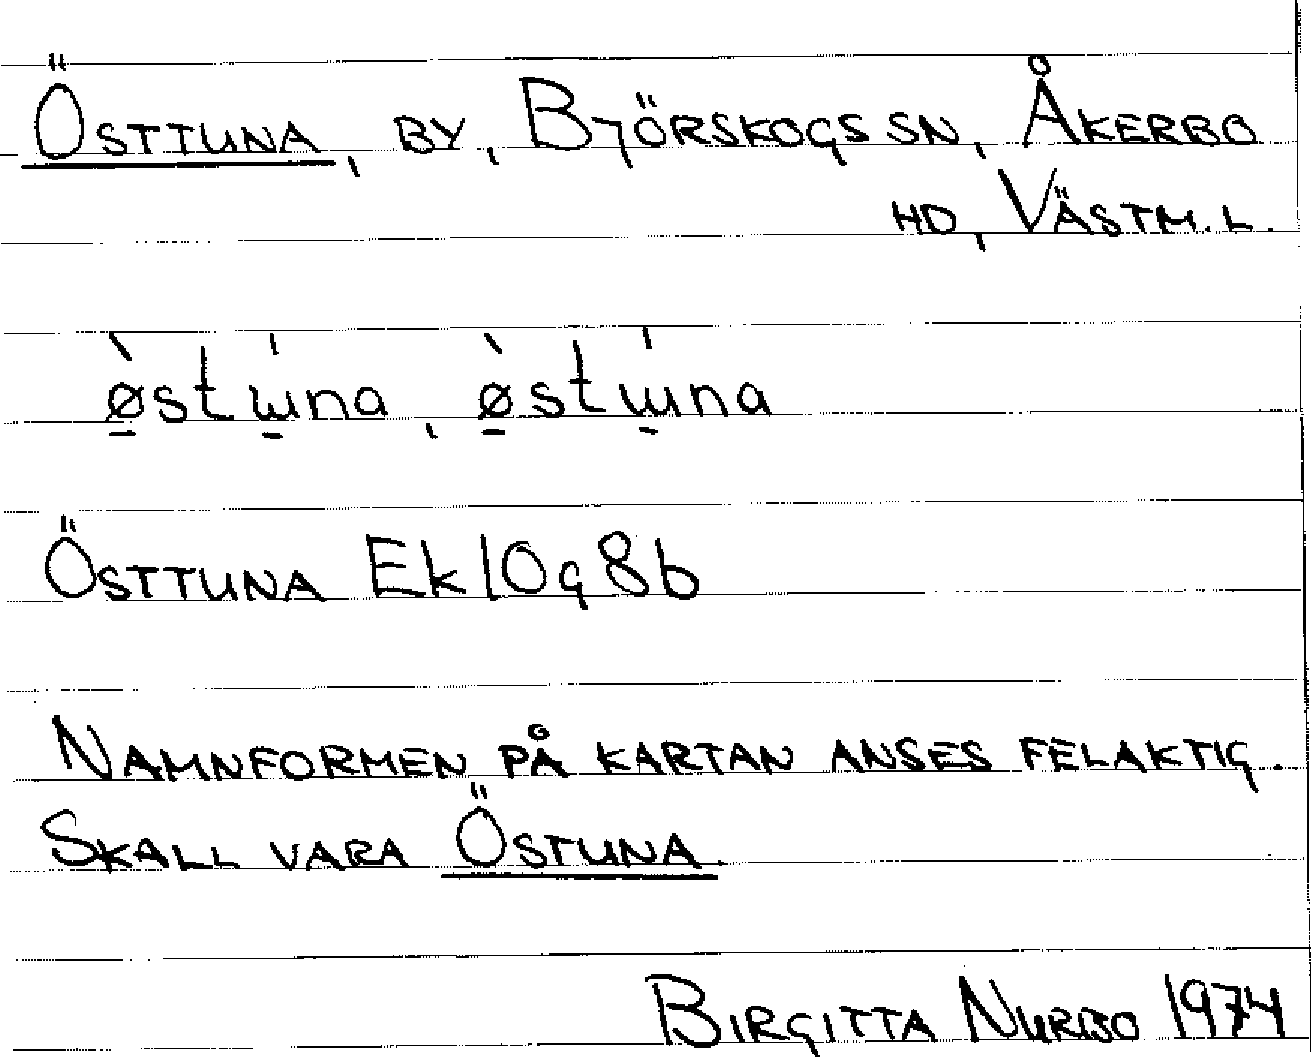 ÖSTTUNA, BY, BJÖRSKOGS SN, ÅKERBO
HD, VÄSTM. L.
ø̱̀stɯ̱́na, ø̱̀stɯ̱́na
ÖSTTUNA Ek 10g 8b
NAMNFORMEN PÅ KARTAN ANSES FELAKTIG.
SKALL VARA ÖSTUNA.
BIRGITTA NURBO 1974